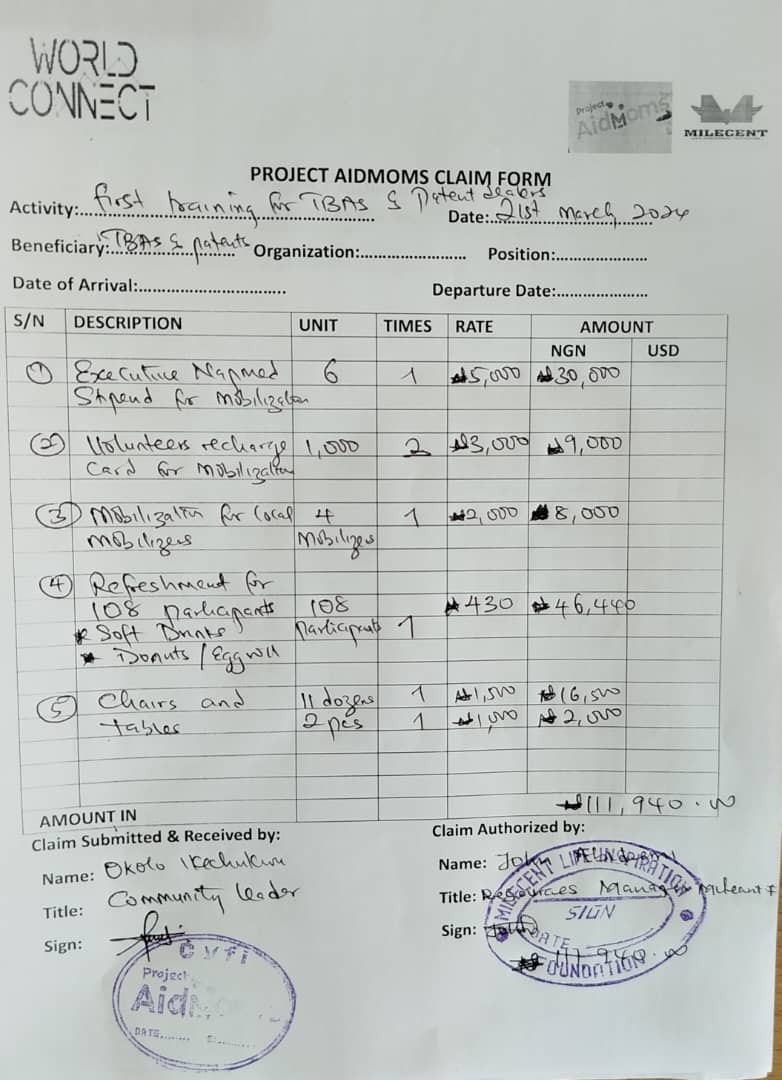 WORLD
CONNECT
Project
AidMoms
MILECENT
PROJECT AIDMOMS CLAIM FORM
Activity: first training for TBAs & Patent dealers Date: 21st March 2024
Beneficiary: TBAs & patents Organization: Position:
Date of Arrival: Departure Date:
S/N DESCRIPTION UNIT TIMES RATE AMOUNT
NGN USD
① Executive Napmed 6 1 ₦5,000 ₦30,000
Stipend for Mobilization
② Volunteers recharge 1,000 2 ₦3,000 ₦9,000
Card for Mobilization
③ Mobilization for local 4 1 ₦2,000 ₦8,000
mobilizers Mobilizers
④ Refreshment for
108 participants 108 ₦430 ₦46,440
* Soft Drinks participants 1
* Donuts / Eggroll
⑤ Chairs and 11 dozens 1 ₦1,500 ₦16,500
tables 2 pcs 1 ₦1,000 ₦2,000
₦111,940.00
AMOUNT IN
Claim Submitted & Received by: Claim Authorized by:
Name: Okolo Ikechukwu Name: John
Title: Community leader Title: Resources Manager
Sign: Sign: John
MILECENT LIFE INSPIRATION
SIGN
DATE
FOUNDATION
₦111,940.00
CYFI
Project
AidMoms
DATE........